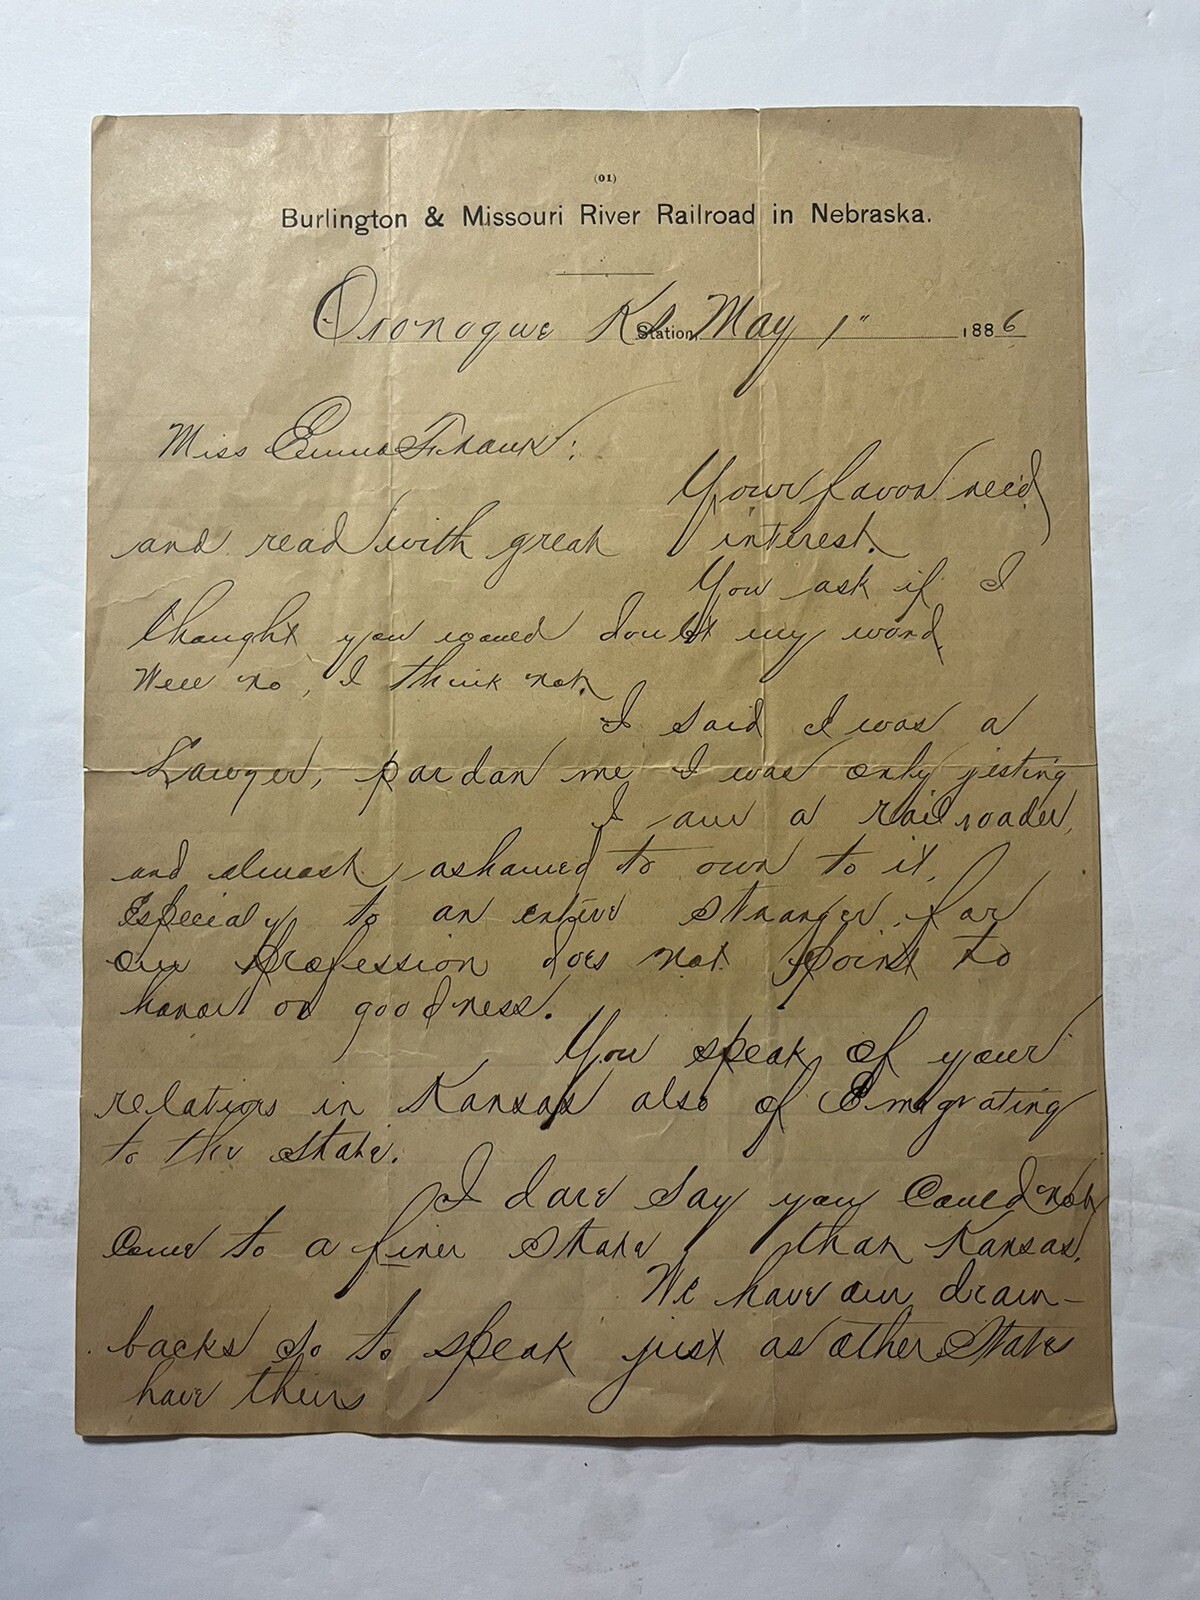 (01)
Burlington & Missouri River Railroad in Nebraska.
Oronoque Ks Station, May 1" 1886
Miss Emma Frank:
Your favor recd
and read with great interest.
You ask if I
thought you would doubt my word,
Well no, I think not.
I said I was a
Lawyer, pardon me I was only jesting
I am a railroader,
and almost ashamed to own to it,
Especialy to an entire stranger, for
our Profession does not point to
honor or goodness.
You speak of your
relations in Kansas also of Emagrating
to the State.
I dare say you Could not
Come to a finer State than Kansas.
We have our draw-
backs so to speak just as other States
have theirs